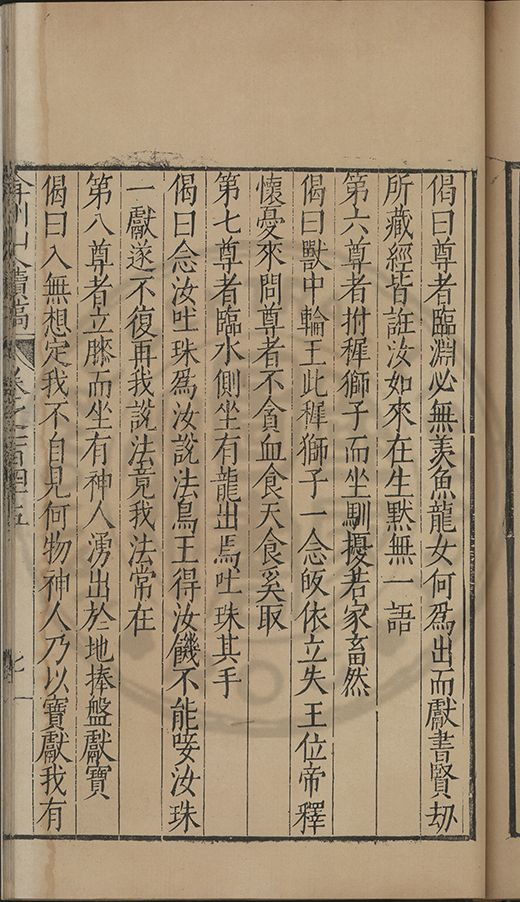 偈曰尊者臨淵必無羨魚龍女何爲出而獻書賢刧
所藏經皆誑汝如來在生黙無一語
第六尊者拊穉獅子而坐馴擾若家畜然
偈曰獸中輪王此穉獅子一念皈依立失王位帝釋
懷憂來問尊者不貪血食天食奚取
第七尊者臨水側坐有龍出焉吐珠其手
偈曰念汝吐珠爲汝說法鳥王得汝饑不能㛮汝珠
一獻遂不復再我說法竟我法常在
第八尊者立膝而坐有神人湧出於地捧盤獻寶
偈曰入無想定我不自見何物神人乃以寶獻我有
弇州山人續稿 卷之一百四十五 七